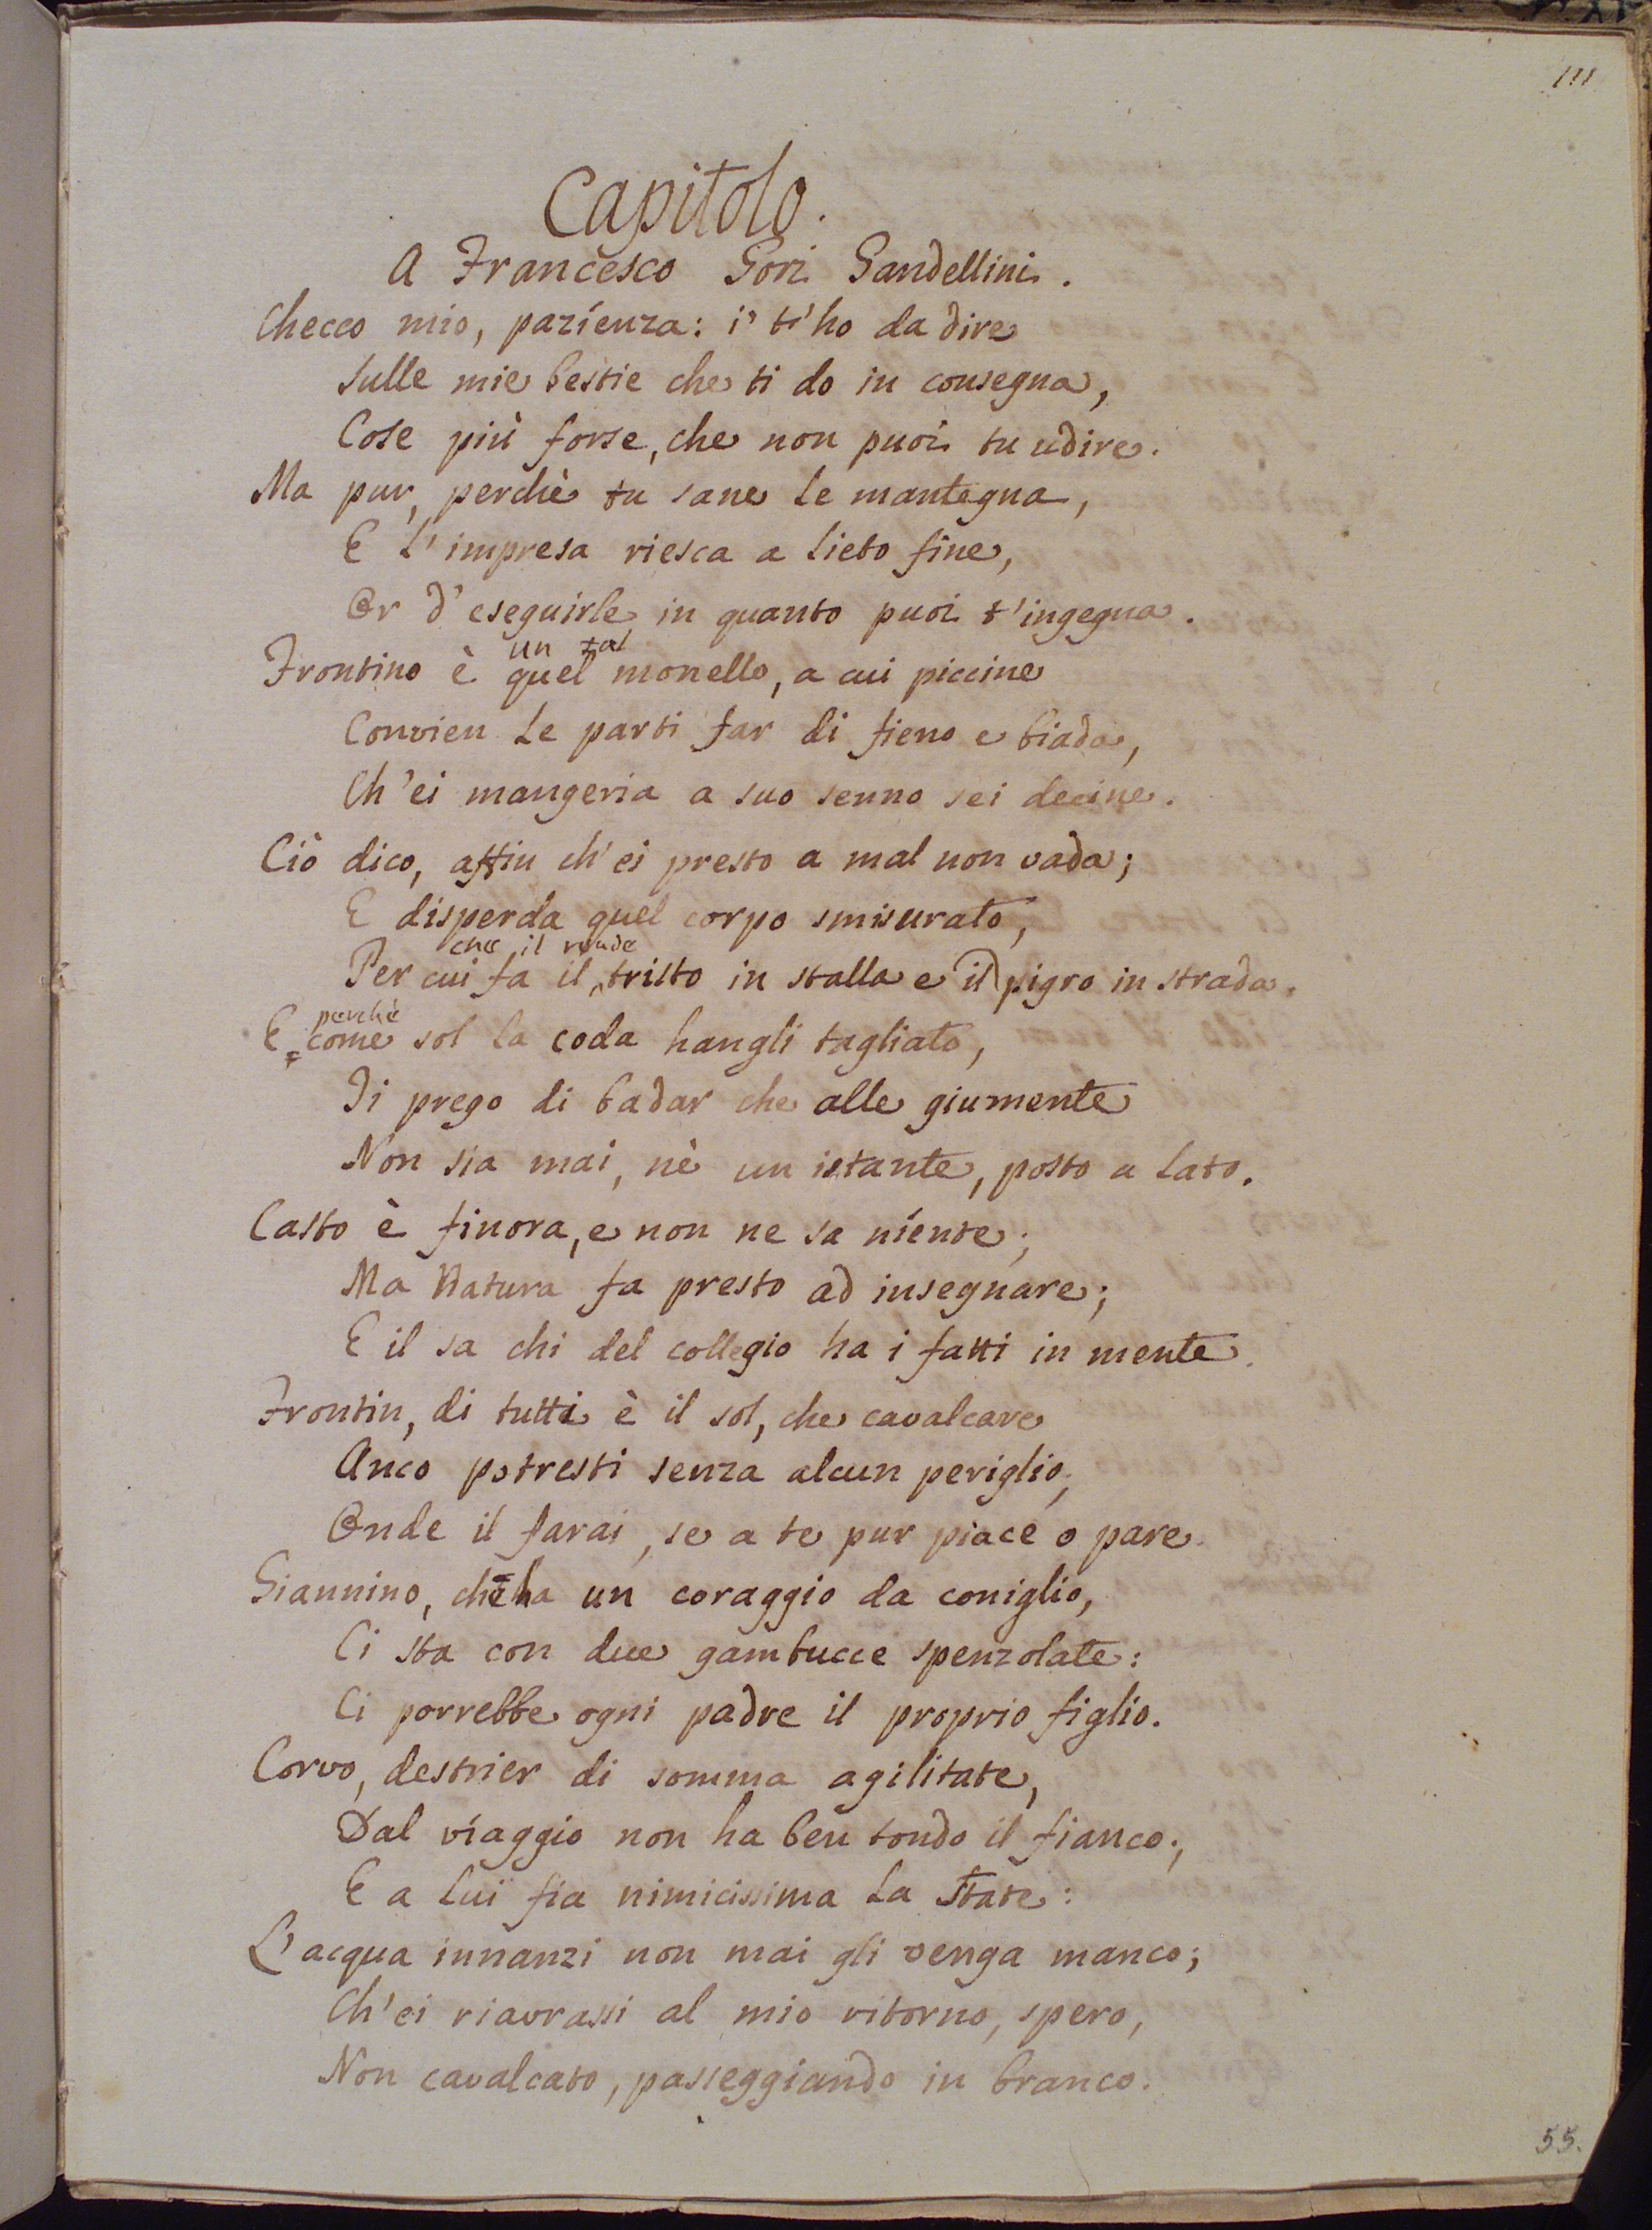 111
Capitolo.
A Francesco Gori Gandellini.
Checco mio, pazienza: i' t'ho da dire
Sulle mie bestie che ti do in consegna,
Cose più forse, che non puoi tu udire.
Ma pur, perchè tu sane le mantegna,
E l'impresa riesca a lieto fine,
Or d'eseguirle in quanto puoi t'ingegna.
un tal
Frontino è quel monello, a cui piccine
Convien le parti far di fieno e biada,
Ch'ei mangeria a suo senno sei decine.
Ciò dico, affin ch'ei presto a mal non vada;
E disperda quel corpo smisurato,
che il rende
Per cui fa il tristo in stalla e il pigro in strada.
perchè
E come sol la coda hangli tagliato,
Ti prego di badar che alle giumente
Non sia mai, nè un istante, posto a lato.
Casto è finora, e non ne sa niente;
Ma Natura fa presto ad insegnare;
E il sa chi del collegio ha i fatti in mente.
Frontin, di tutti è il sol, che cavalcare
Anco potresti senza alcun periglio;
Onde il farai, se a te pur piace o pare.
Giannino, che ha un coraggio da coniglio,
Ci sta con due gambucce spenzolate:
Ci porrebbe ogni padre il proprio figlio.
Corvo, destrier di somma agilitate,
Dal viaggio non ha ben tondo il fianco;
E a lui fia nimicissima la State:
L'acqua innanzi non mai gli venga manco;
Ch'ei riavrassi al mio ritorno, spero,
Non cavalcato, passeggiando in branco.
55.